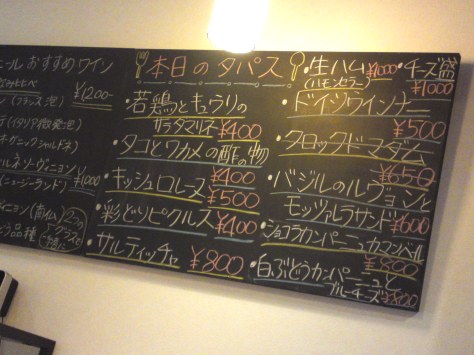 おすすめワイン
¥1200-
(フランス 泡)
(イタリア微発泡)
¥1000
(ニュージーランド)
本日のタパス
・若鶏とキュウリの
サラダマリネ ¥400
・タコとワカメの酢の物
¥400
・キッシュロレーヌ
¥500
・彩どりピクルス ¥400
・サルティッチャ
¥800
・生ハム ¥1000
(ハモンセラー)
・チーズ盛
¥1000
・ドイツウインナー
¥500
・クロックドマダム
¥650
・バジルのルヴァンと
モッツァレラサンド ¥600
・ショコラカンパーニュカマンベール
¥800
・白ぶどうカンパーニュと
ブルーチーズ ¥800